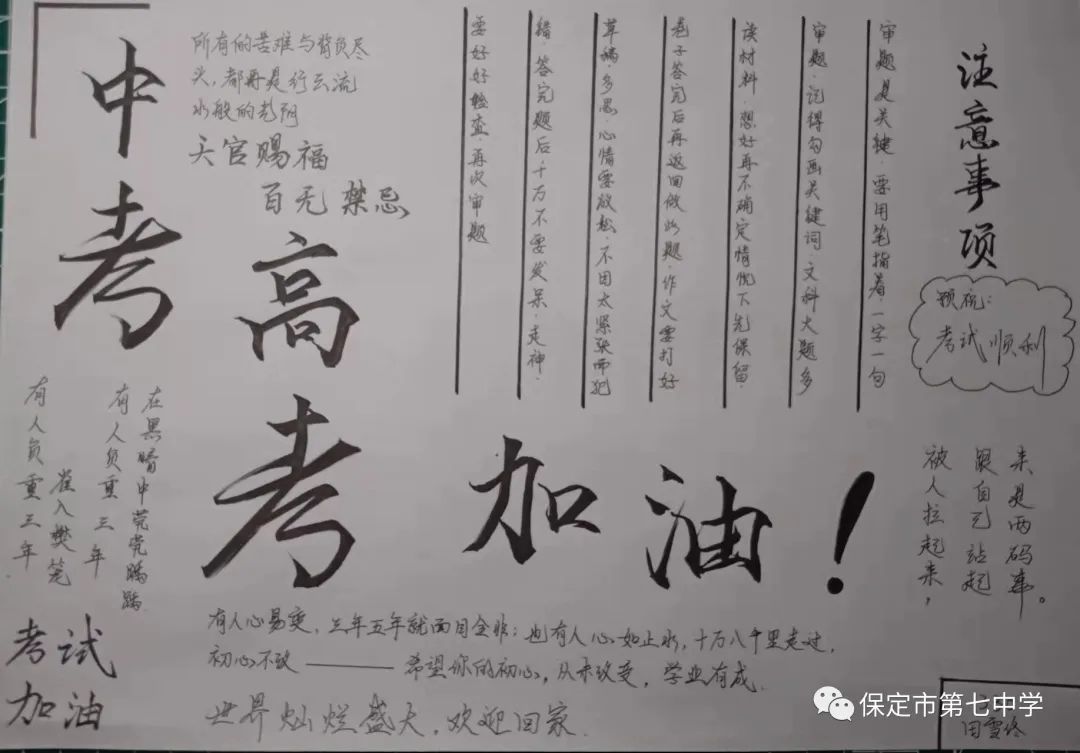 中考
高考
加油！
所有的苦难与背负尽
头，都再是行云流
水般的光阴
天官赐福
百无禁忌
注意事项
审题是关键 要用笔指着·一字一句
审题·记得勾画关键词 文科大题多
读材料·想好再不确定情况下先保留·
卷子答完后再返回做此题·作文要打好
草稿·多思·心情要放松·不因太紧张而犯
错·答完题后千万不要发呆·走神·
要好好检查·再次审题
预祝：
考试顺利
在黑暗中茕茕踽踽
有人负重三年
雀入樊笼
有人负重三年
来是两码事。
跟自己站起
被人拉起来，
考试
加油
有人心易变，三年五年就面目全非；也有人心如止水，十万八千里走过，
初心不改——希望你的初心，从未改变，学业有成
世界灿烂盛大，欢迎回家
保定市第七中学